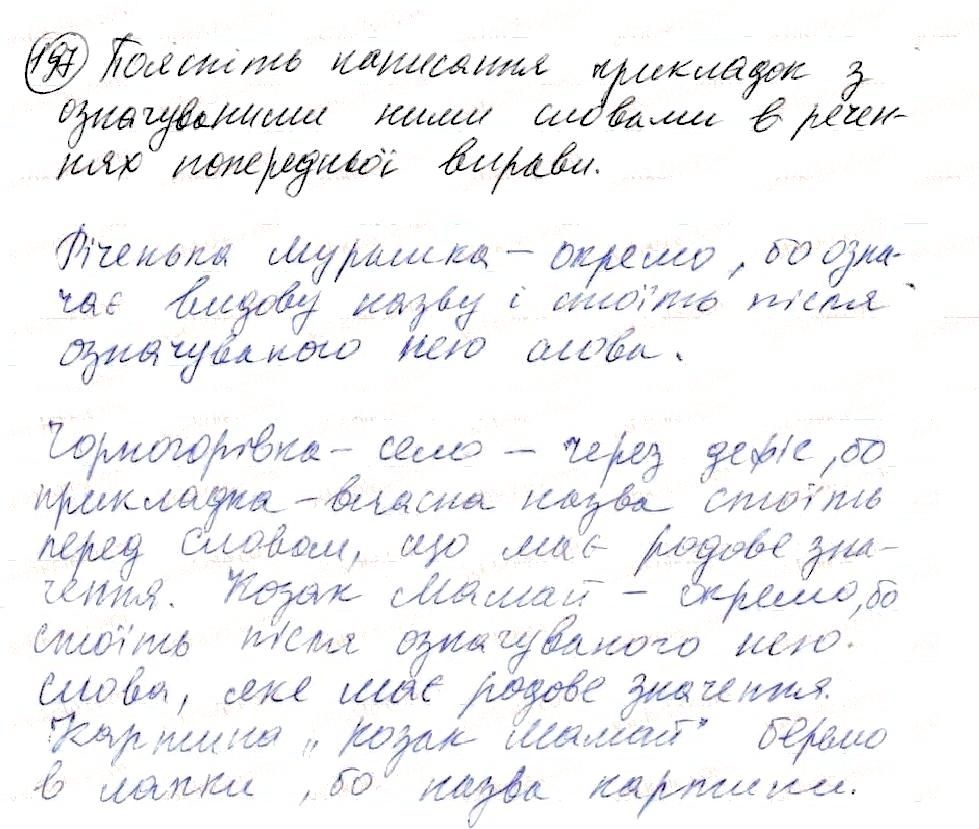 197 Поясніть написання прикладок з
означуваними ними словами в речен-
нях попередньої вправи.
Річенька Мурашка – окремо, бо озна-
чає видову назву і стоїть після
означуваного нею слова.
Чорногорівка – село – через дефіс, бо
прикладка – власна назва стоїть
перед словом, що має родове зна-
чення. Козак Мамай – окремо, бо
стоїть після означуваного нею
слова, яке має родове значення.
Картина „Козак Мамай" беремо
в лапки, бо назва картини.